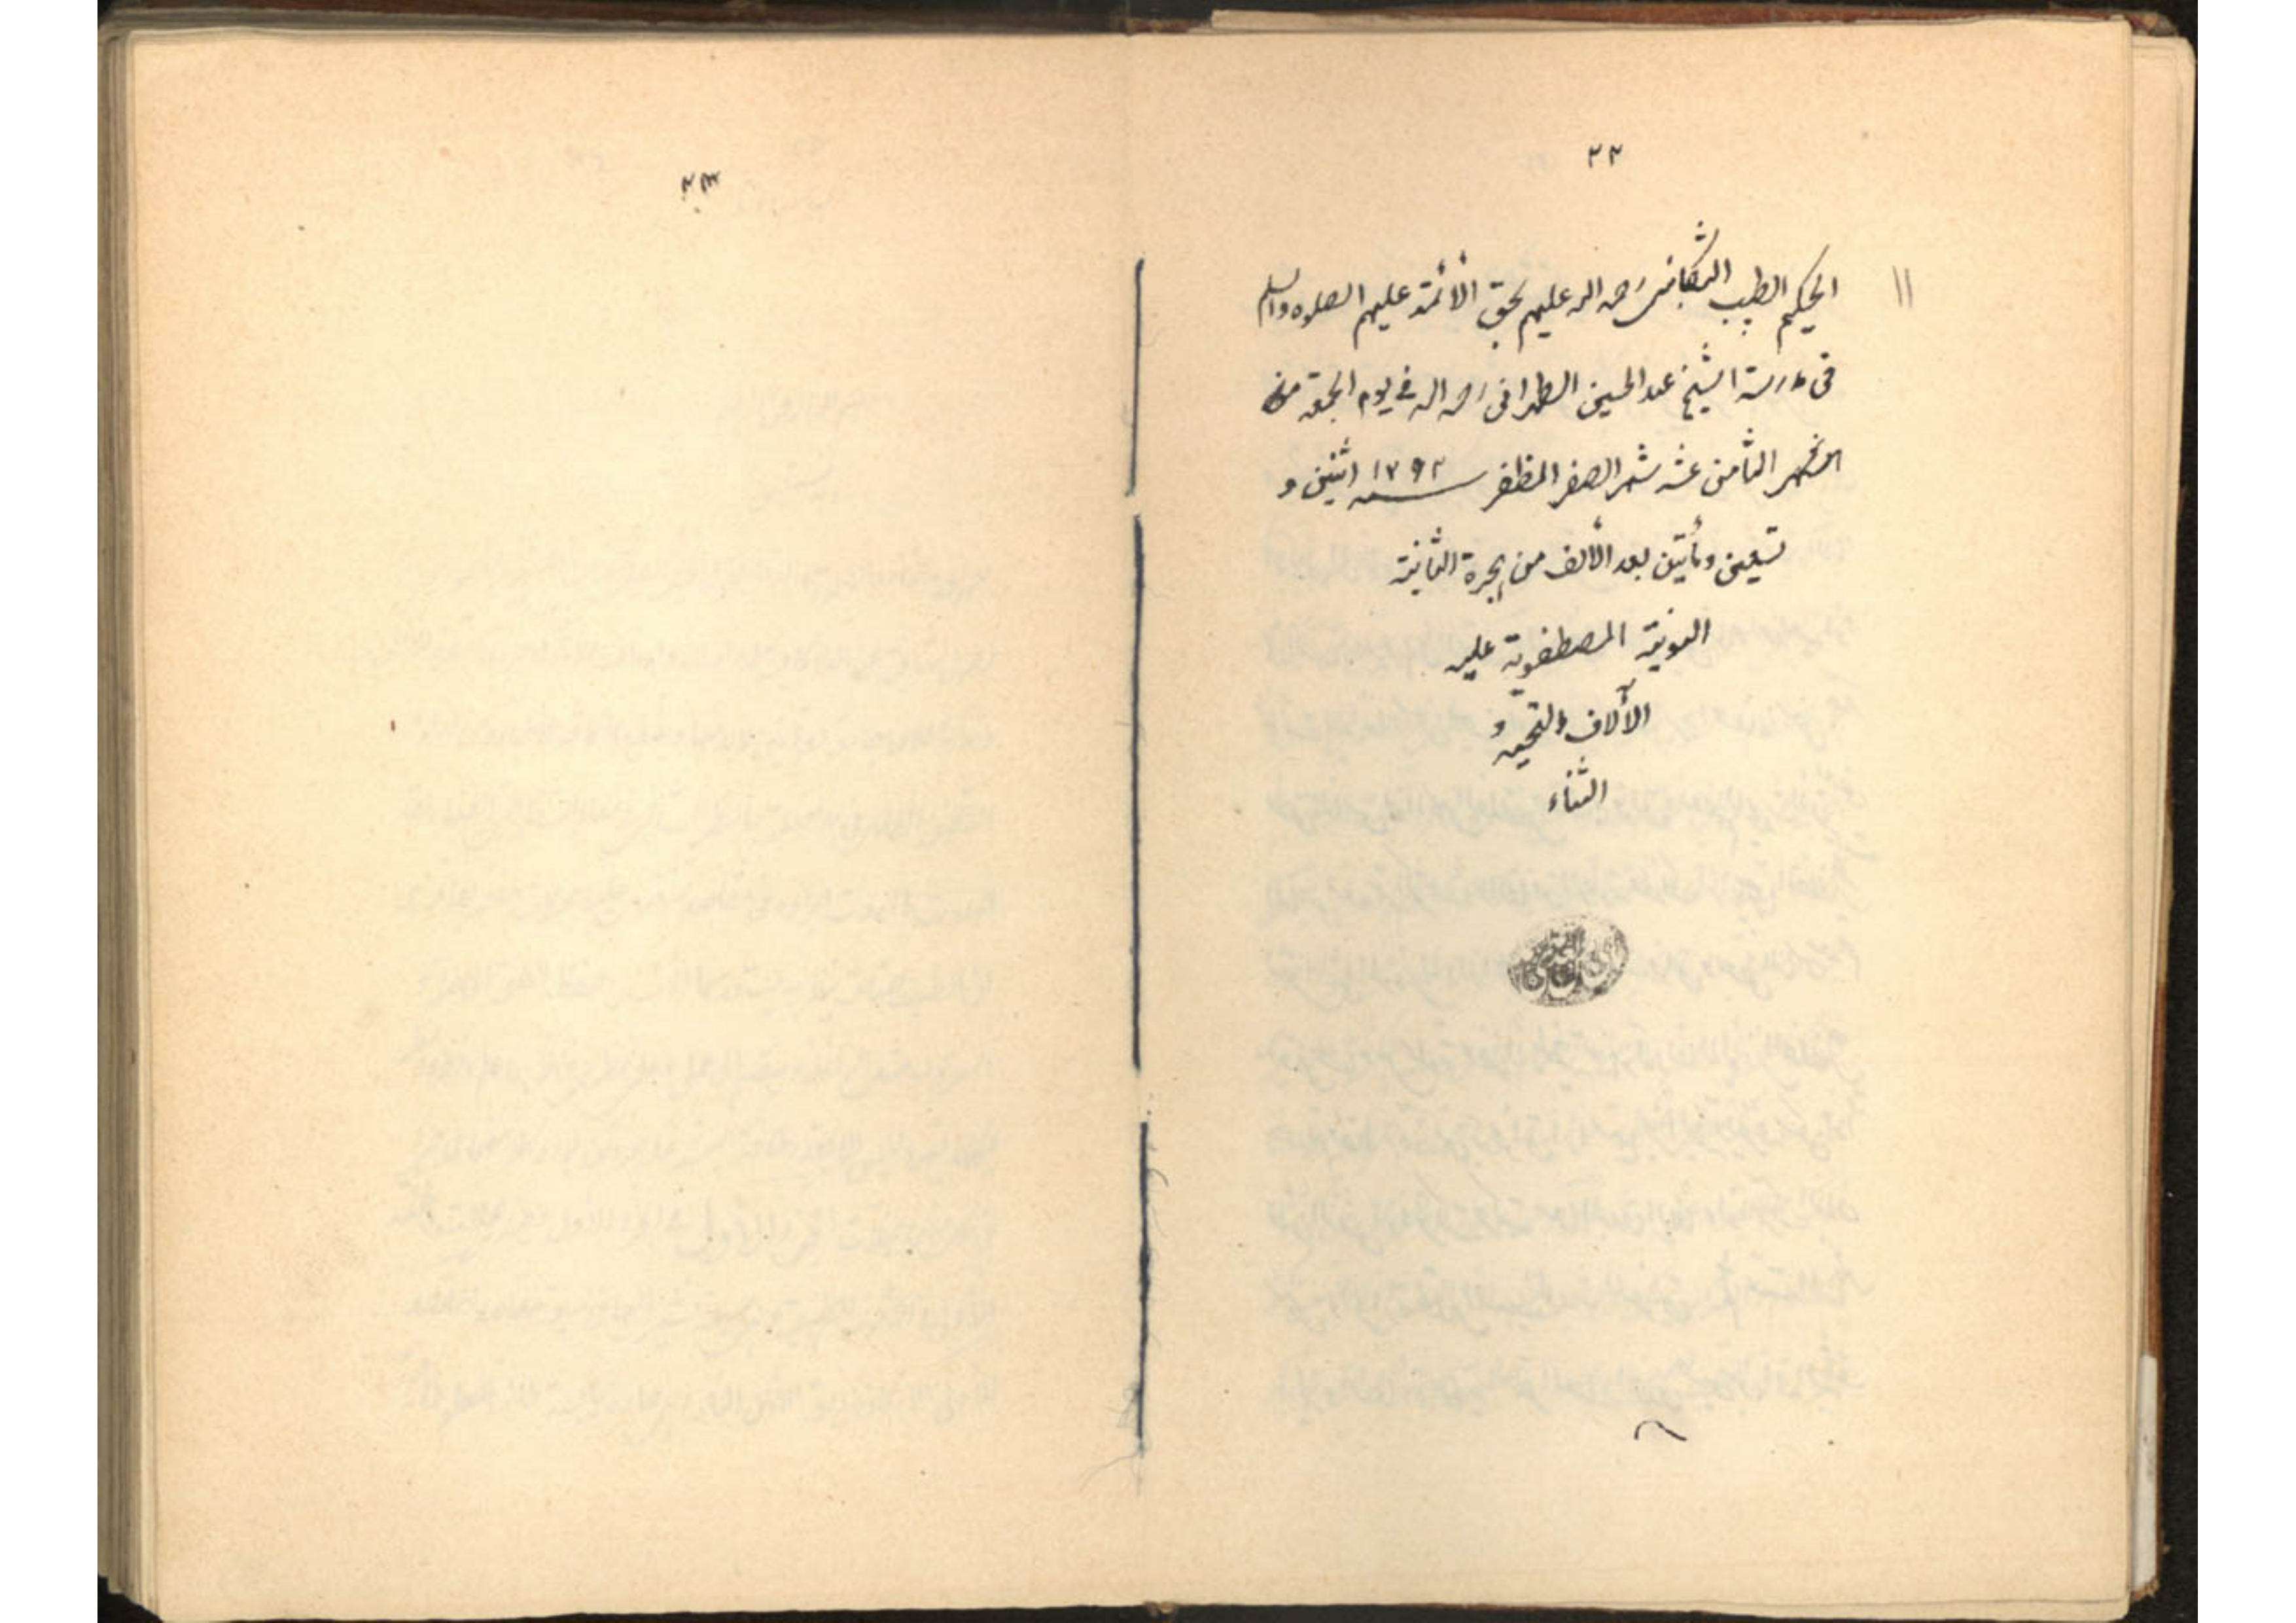 ٢٢
الحكيم الطبيب رحمه الله عليهم بحق الأئمة عليهم الصلوه والسلم
في مدرسة الشيخ عبد الحسين الطهراني رحمه الله في يوم الجمعة من
الشهر الثامن عشر شهر الصفر المظفر سنه ١٢٩٢ اثنين و
تسعين ومأتين بعد الألف من الهجرة
المصطفوية عليه
الآلاف التحيه و
الثناء
٢٣